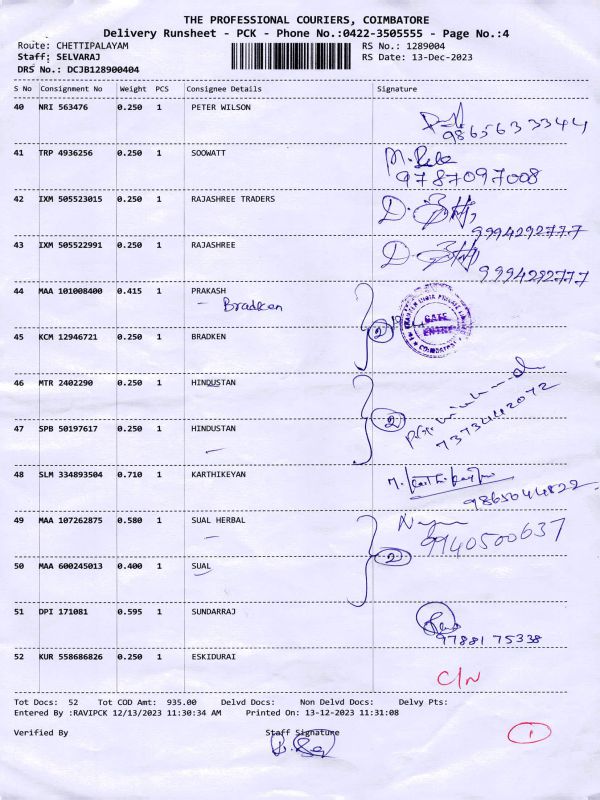 THE PROFESSIONAL COURIERS, COIMBATORE
Delivery Runsheet - PCK - Phone No.:0422-3505555 - Page No.:4
Route: CHETTIPALAYAM RS No.: 1289004
Staff: SELVARAJ RS Date: 13-Dec-2023
DRS No.: DCJB128900404
S No Consignment No Weight PCS Consignee Details Signature
40 NRI 563476 0.250 1 PETER WILSON
9865633344
41 TRP 4936256 0.250 1 SOOWATT
9787097008
42 IXM 505523015 0.250 1 RAJASHREE TRADERS
9994292777
43 IXM 505522991 0.250 1 RAJASHREE
9994292777
44 MAA 101008400 0.415 1 PRAKASH
- Bradken
GATE
ENTRY
COIMBATORE
2
45 KCM 12946721 0.250 1 BRADKEN
46 MTR 2402290 0.250 1 HINDUSTAN
2
7373442072
47 SPB 50197617 0.250 1 HINDUSTAN
48 SLM 334893504 0.710 1 KARTHIKEYAN
M. Karthikeyan
9865044822
49 MAA 107262875 0.580 1 SUAL HERBAL
9940500637
2
50 MAA 600245013 0.400 1 SUAL
51 DPI 171081 0.595 1 SUNDARRAJ
9788175338
52 KUR 558686826 0.250 1 ESKIDURAI
C/N
Tot Docs: 52 Tot COD Amt: 935.00 Delvd Docs: Non Delvd Docs: Delvy Pts:
Entered By :RAVIPCK 12/13/2023 11:30:34 AM Printed On: 13-12-2023 11:31:08
1
Verified By Staff Signature